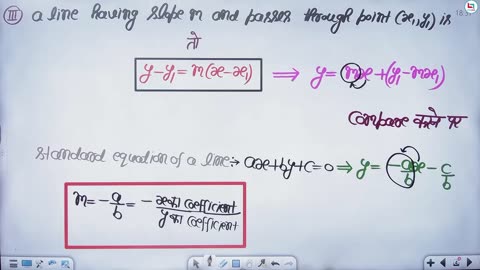 III a line having slope m and passes through point (x1, y1) is
तो
y-y1 = m(x-x1) ⟹ y = mx+(y1-mx1)
Compare करने पर
Standard equation of a line:- ax+by+c=0 ⟹ y = -a/b x - c/b
m = -a/b = - x का coefficient / y का coefficient